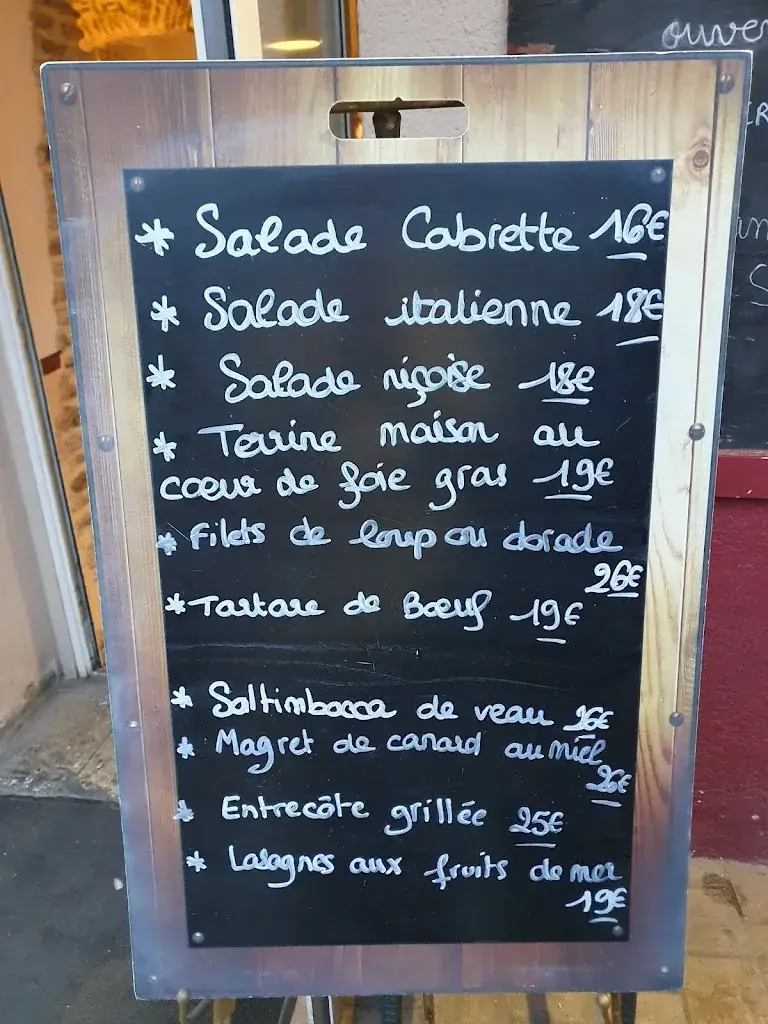 ouver
* Salade Cabrette 16€
* Salade italienne 18€
* Salade niçoise 18€
* Terrine maison au
coeur de foie gras 19€
* Filets de loup ou dorade
26€
* Tartare de Bœuf 19€
* Saltimbocca de veau 26€
* Magret de canard au miel
26€
* Entrecôte grillée 25€
* Lasagnes aux fruits de mer
19€